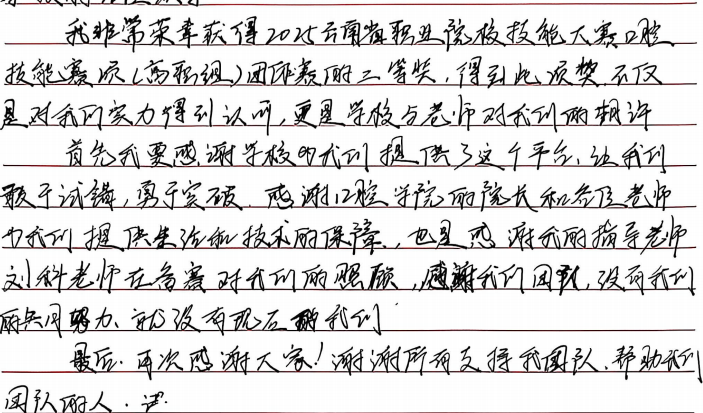 我非常荣幸获得2025云南省职业院校技能大赛口腔
技能赛项(高职组)团体赛的二等奖,得到此项奖不仅
是对我们实力得到认可,更是学校与老师对我们的期许
首先我要感谢学校为我们提供了这个平台,让我们
敢于试错,勇于突破.感谢口腔学院的院长和各位老师
为我们提供生活和技术的保障.,也是感谢我的指导老师
刘科老师在备赛对我们的照顾,感谢我们团队,没有我们
的共同努力、就没有现在的我们
最后.再次感谢大家!谢谢所有支持我团队、帮助我们
团队的人.